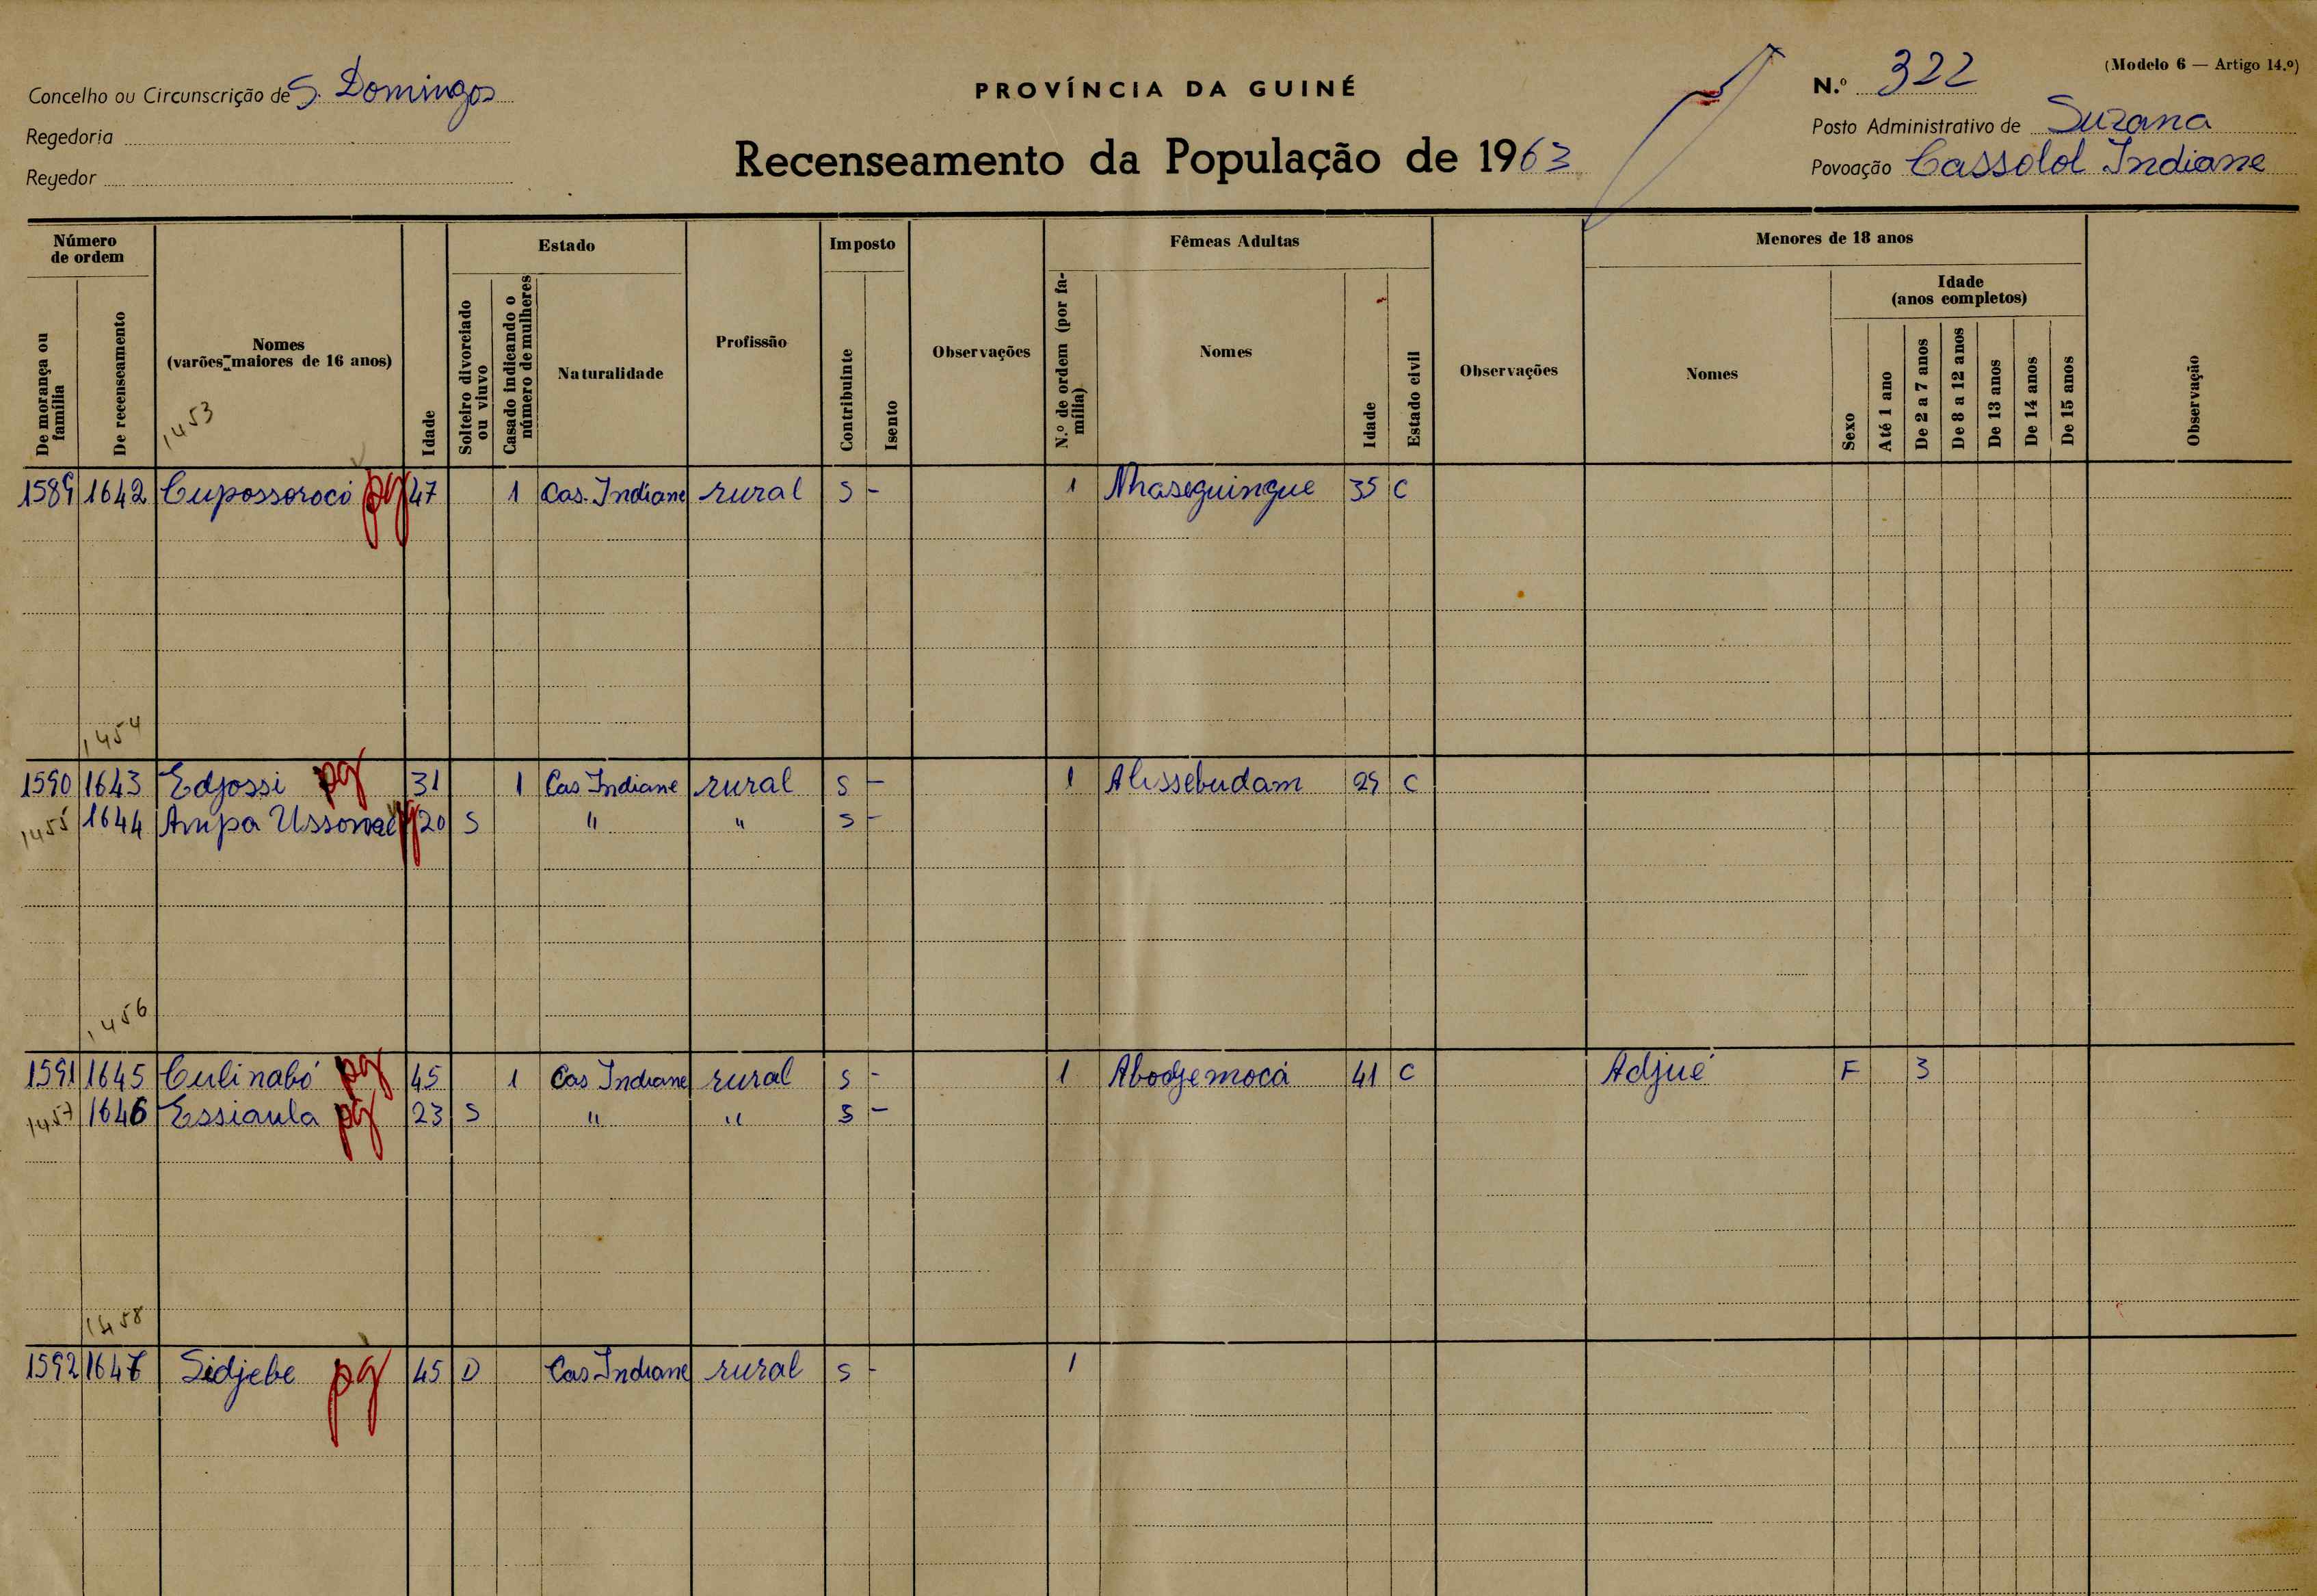 (Modelo 6 — Artigo 14.º)
Concelho ou Circunscrição de S. Domingos
PROVÍNCIA DA GUINÉ
N.º 322
Regedoria
Posto Administrativo de Suzana
Regedor
Recenseamento da População de 1963
Povoação Cassolol Indiane
Número de ordem
Estado
Imposto
Fêmeas Adultas
Menores de 18 anos
De morança ou família
De recenseamento
Nomes
(varões maiores de 16 anos)
Idade
Solteiro divorciado ou viuvo
Casado indicando o número de mulheres
Naturalidade
Profissão
Contribuinte
Isento
Observações
N.º de ordem (por família)
Nomes
Idade
Estado civil
Observações
Nomes
Sexo
Idade
(anos completos)
Até 1 ano
De 2 a 7 anos
De 8 a 12 anos
De 13 anos
De 14 anos
De 15 anos
Observação
1453
1589 1642 Cupossorocó pg 47 1 Cas. Indiane rural S - 1 Nhaseguingue 35 C
1454
1590 1643 Edjossi pg 31 1 Cas Indiane rural S - 1 Alissebudam 29 C
1455 1644 Ampa 20 S " " S -
1456
1591 1645 Culinabó pg 45 1 Cas Indiane rural S - 1 Abodjemocá 41 C Adjué F 3
1457 1646 Essiaula pg 23 S " " S -
1458
1592 1647 Sidjebe pg 45 D Cas Indiane rural S - 1